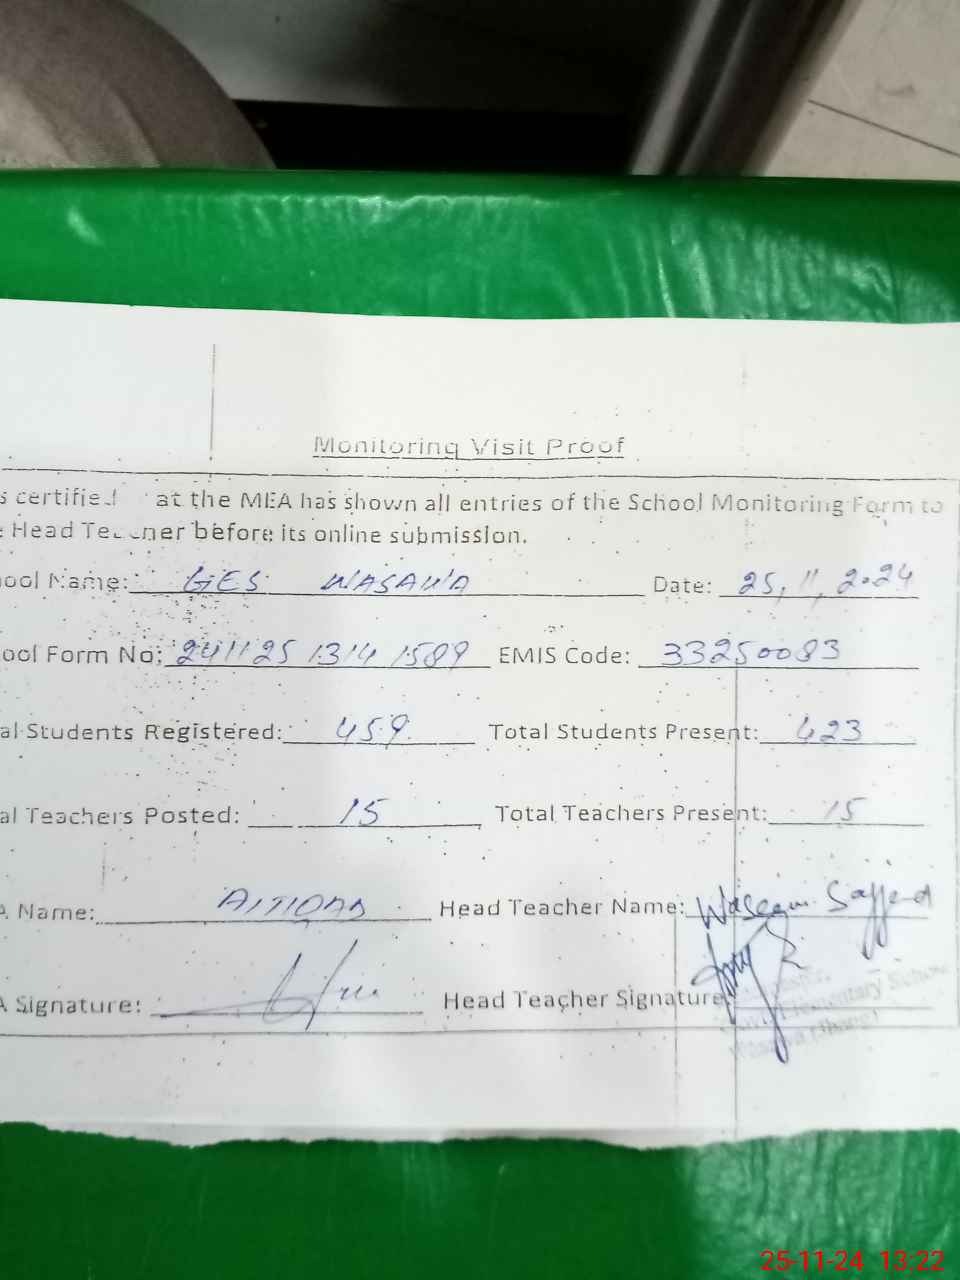 Monitoring Visit Proof
s certified at the MEA has shown all entries of the School Monitoring Form to
e Head Teacher before its online submission.
ool Name: GES WASAWA Date: 25, 11, 2024
ool Form No: 241125 1314 1589 EMIS Code: 33250083
al Students Registered: 459 Total Students Present: 423
al Teachers Posted: 15 Total Teachers Present: 15
A Name: Head Teacher Name: Waseem Sajjad
A Signature: Head Teacher Signature
Elementary School
25-11-24 13:22